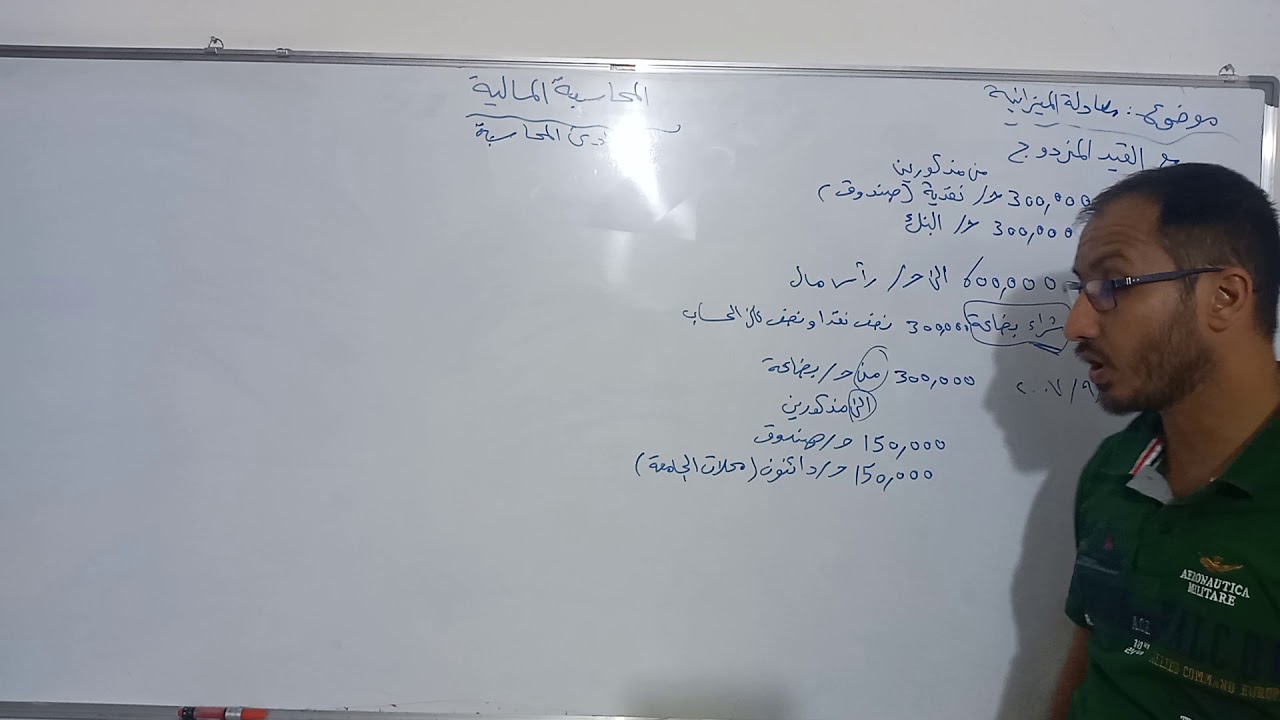 المحاسبة المالية
المحاسبة
موضوع: معادلة الميزانية
القيد المزدوج
من مذكورين
300,000 ح/ نقدية (صندوق)
300,000 ح/ البنك
600,000 الى ح/ رأس مال
شراء بضاعة 300,000 نصف نقدا ونصف على الحساب
٢٠٠٧/٩
300,000 من ح/ بضاعة
الى مذكورين
150,000 ح/ صندوق
150,000 ح/ دائنون (محلات الجامعة)
AERONAUTICA
MILITARE